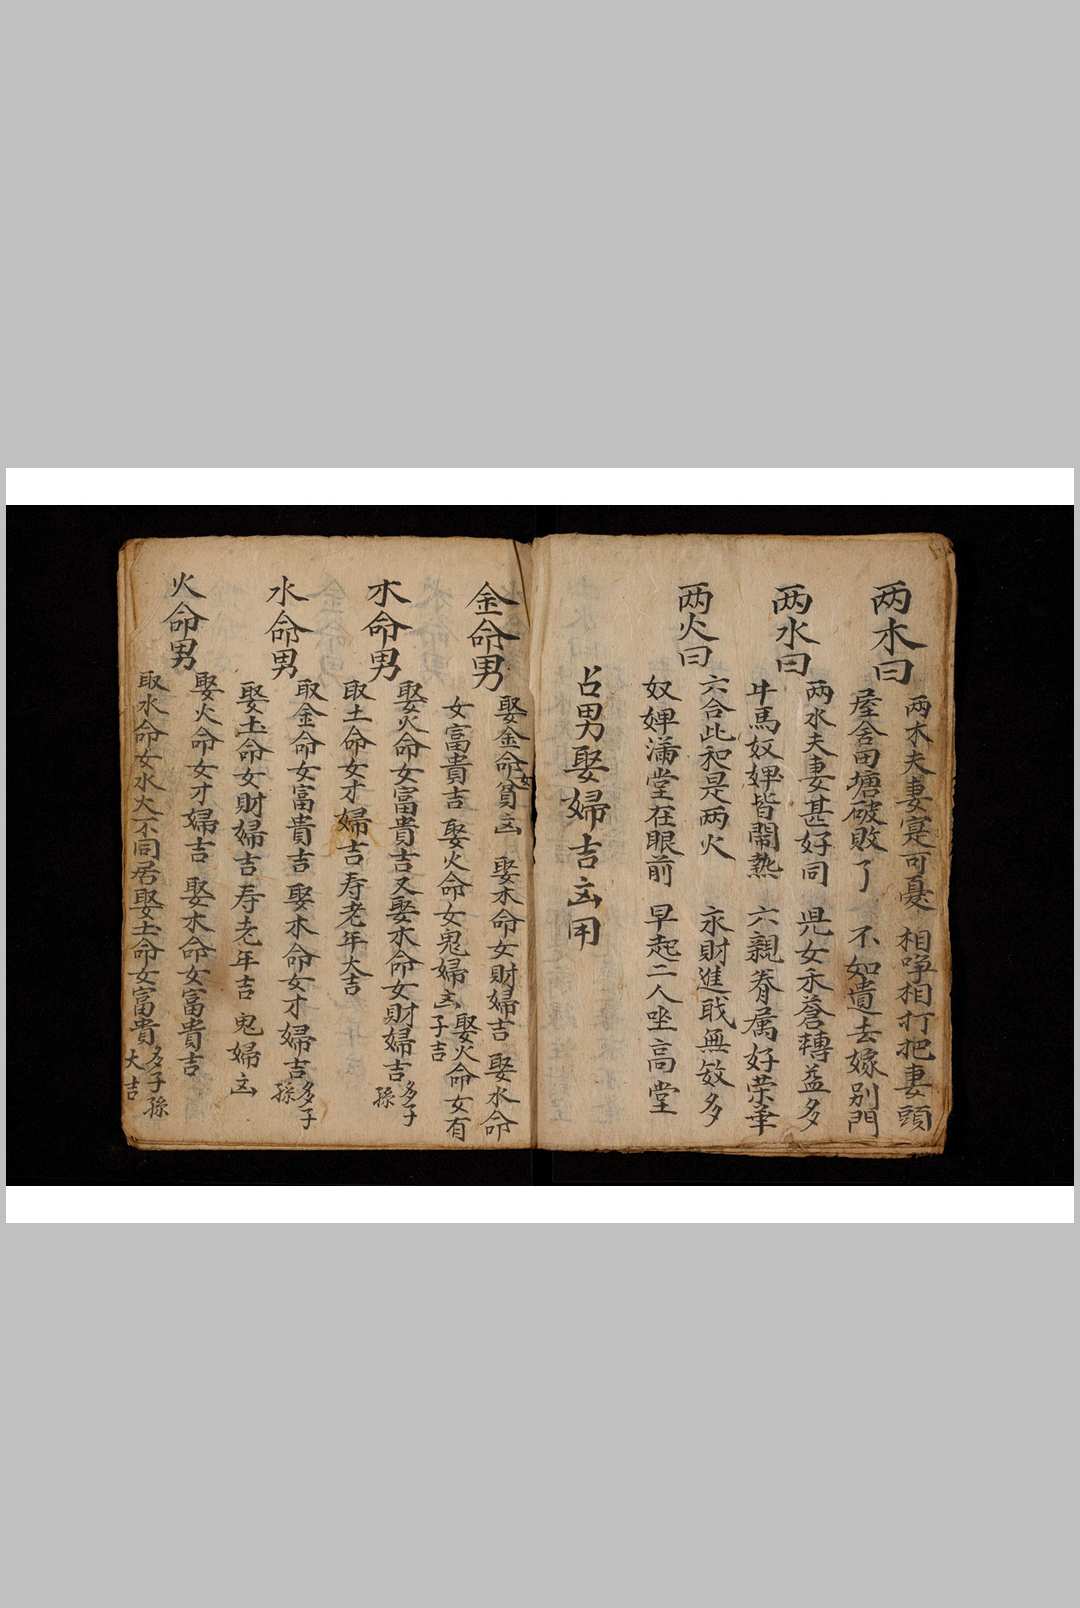 两木曰
两木夫妻寔可憂 相啀相打把妻頭
屋舍田塘破敗了 不如遺去嫁別門
两水曰
两水夫妻甚好同 児女禾蒼轉益多
牛馬奴婢皆閙熱 六親眷属好荣華
两火曰
六合此和是两火 永財進戝無数多
奴婢滿堂在眼前 早起二人坐高堂
占男娶婦吉凶用
金命男
娶金命女貧凶 娶木命女財婦吉 娶水命
女富貴吉 娶火命女鬼婦凶 娶火命女有
子吉
木命男
娶火命女富貴吉又娶水命女財婦吉多子
孫
取土命女才婦吉寿老年大吉
水命男
取金命女富貴吉 娶木命女才婦吉多子
孫
娶土命女財婦吉寿老年吉 鬼婦凶
火命男
娶火命女才婦吉 娶木命女富貴吉
取水命女水火不同居娶土命女富貴多子孫
大吉